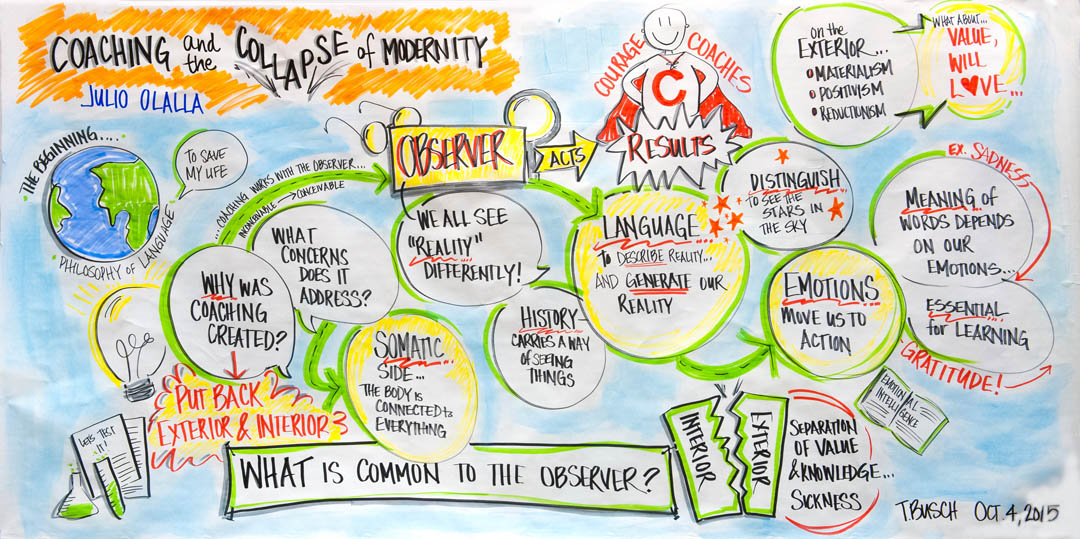 COACHING and the COLLAPSE of MODERNITY
JULIO OLALLA
THE BEGINNING....
TO SAVE
MY LIFE
PHILOSOPHY OF LANGUAGE
...COACHING WORKS WITH THE OBSERVER...
INCONCEIVABLE → CONCEIVABLE
WHY WAS
COACHING
CREATED?
WHAT
CONCERNS
DOES IT
ADDRESS?
PUT BACK
EXTERIOR & INTERIOR
LETS TEST
IT!
SOMATIC
SIDE...
THE BODY IS
CONNECTED to
EVERYTHING
OBSERVER
ACTS
RESULTS
COURAGE
COACHES
C
WE ALL SEE
"REALITY"
DIFFERENTLY!
HISTORY-
CARRIES A WAY
OF SEEING
THINGS
LANGUAGE
TO DESCRIBE REALITY...
AND GENERATE OUR
REALITY
DISTINGUISH
TO SEE THE
STARS IN
THE SKY
on the
EXTERIOR...
MATERIALISM
POSITIVISM
REDUCTIONISM
WHAT ABOUT...
VALUE,
WILL
LOVE...
EX. SADNESS
MEANING of
WORDS DEPENDS
ON OUR
EMOTIONS...
EMOTIONS
MOVE US TO
ACTION
ESSENTIAL
for LEARNING
GRATITUDE!
EMOTIONAL
INTELLIGENCE
WHAT IS COMMON TO THE OBSERVER?
INTERIOR
EXTERIOR
SEPARATION
OF VALUE
& KNOWLEDGE...
SICKNESS
T.BUSCH OCT. 4, 2015